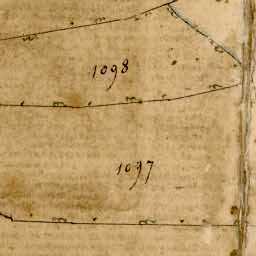 1098
1097